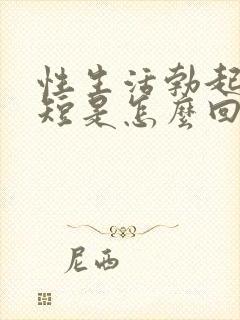 性生活勃起
短是怎麼回
尼西